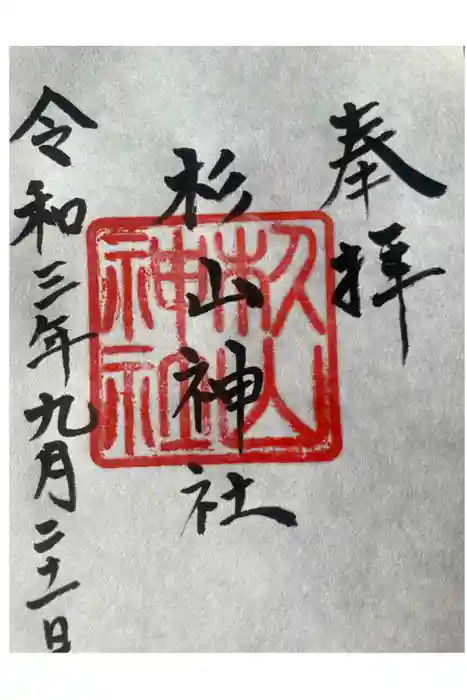 奉拝
杉山神社
杉山
神社
令和三年九月二十一日